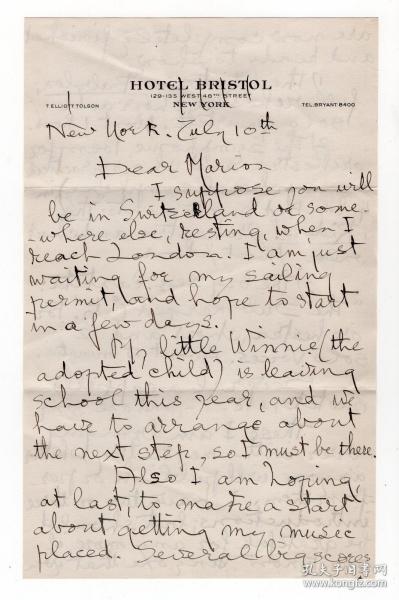 HOTEL BRISTOL
129-135 WEST 48TH STREET
T. ELLIOTT TOLSON NEW YORK TEL. BRYANT 8400
New York. July 10th
Dear Marion
I suppose you will
be in Switzerland or some-
-where else, resting, when I
reach London. I am just
waiting for my sailing
permit, and hope to start
in a few days.
My little Winnie (the
adopted child) is leaving
school this year, and we
have to arrange about
the next step, so I must be there.
Also I am hoping,
at last, to make a start
about getting my music
placed. Several big scores
孔夫子旧书网
www.kongfz.com